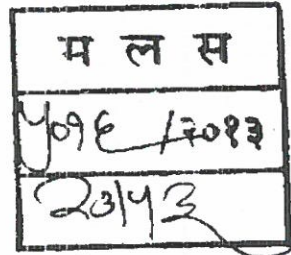 म ल स
५०१६ /२०१३
२३/५३